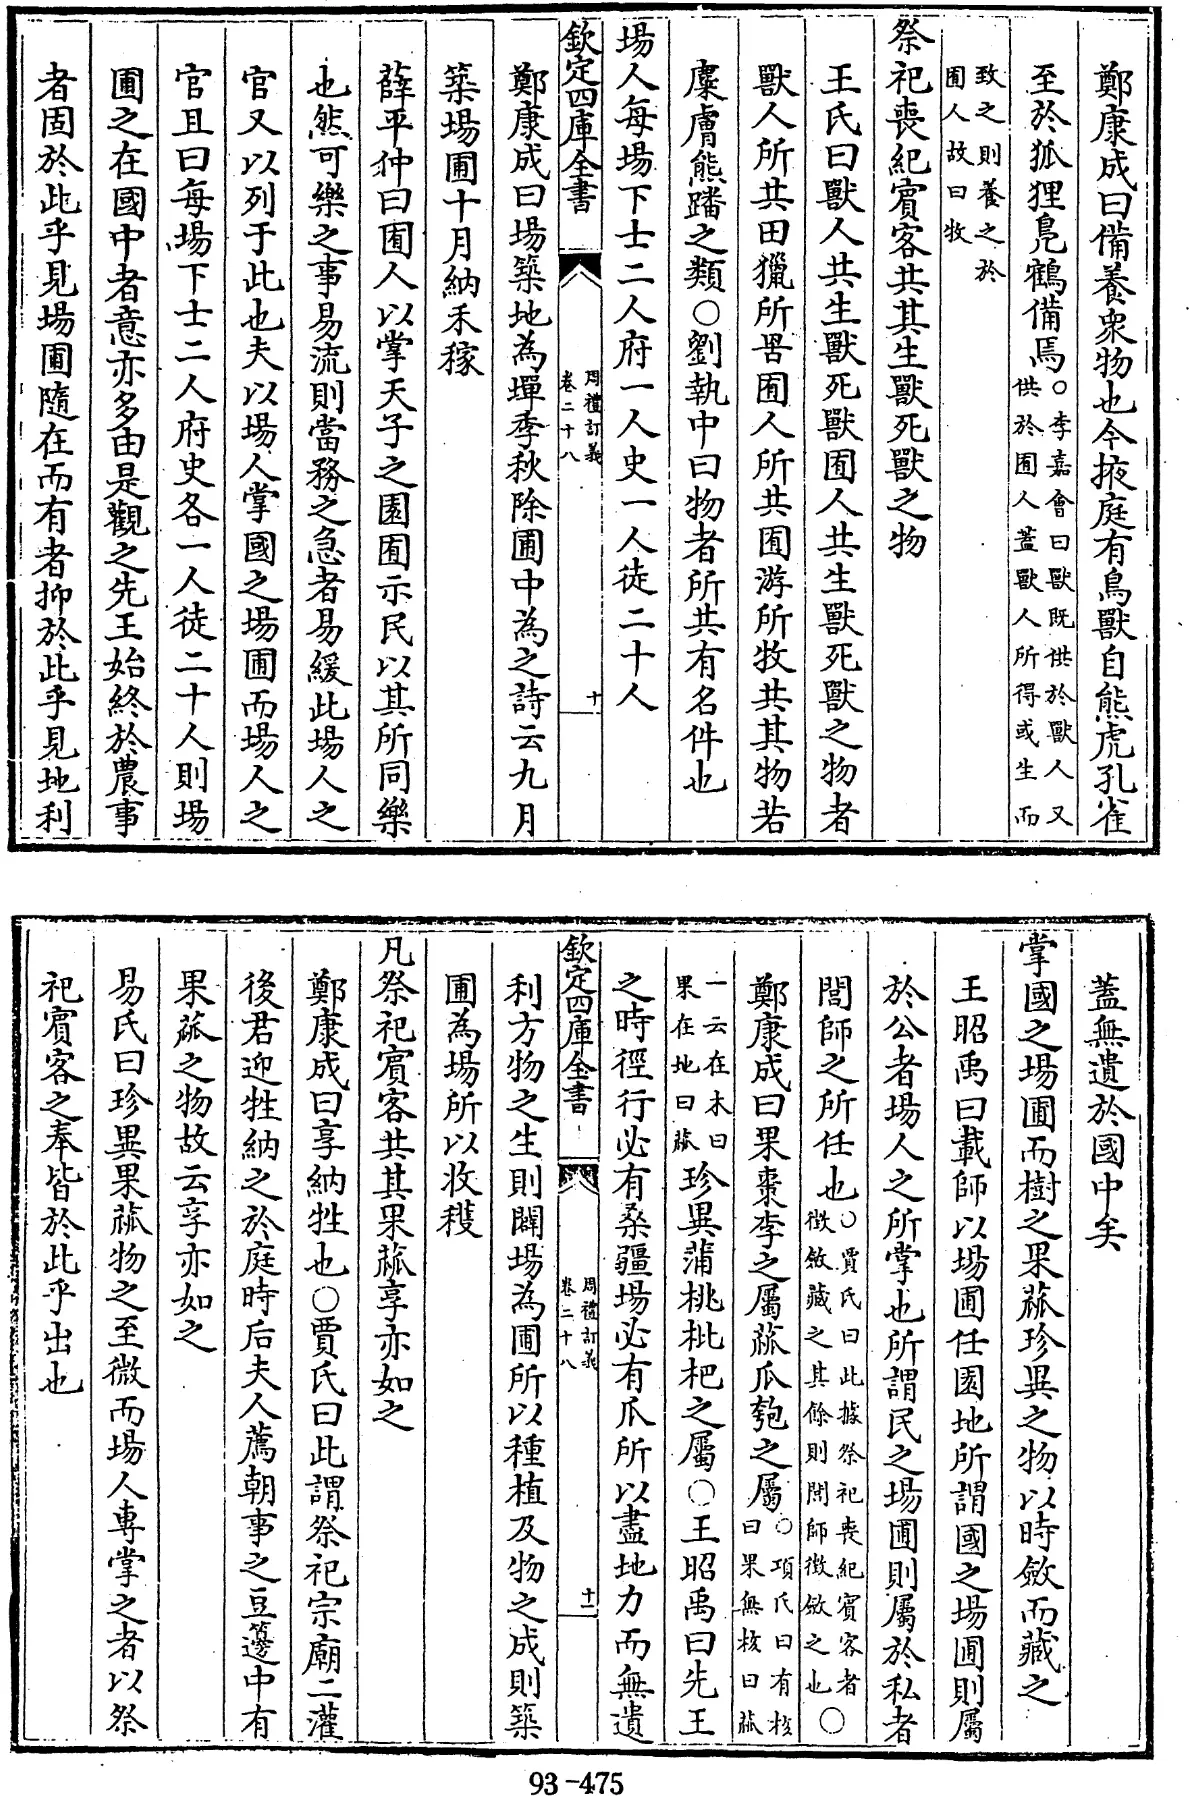 鄭康成曰備養衆物也今掖庭有鳥獸自熊虎孔雀
至於狐狸鳧鶴備焉○李嘉會曰獸既供於獸人又供於囿人蓋獸人所得或生而
致之則養之於囿人故曰牧
祭祀喪紀賓客共其生獸死獸之物
王氏曰獸人共生獸死獸囿人共生獸死獸之物者
獸人所共田獵所罟囿人所共囿游所牧共其物若
麋膚熊蹯之類○劉執中曰物者所共有名件也
場人每場下士二人府一人史一人徒二十人
欽定四庫全書 周禮訂義 卷二十八 十
鄭康成曰場築地為墠季秋除圃中為之詩云九月
築場圃十月納禾稼
薛平仲曰囿人以掌天子之園囿示民以其所同樂
也然可樂之事易流則當務之急者易緩此場人之
官又以列于此也夫以場人掌國之場圃而場人之
官且曰每場下士二人府史各一人徒二十人則場
圃之在國中者意亦多由是觀之先王始終於農事
者固於此乎見場圃隨在而有者抑於此乎見地利
蓋無遺於國中矣
掌國之場圃而樹之果蓏珍異之物以時斂而藏之
王昭禹曰載師以場圃任園地所謂國之場圃則屬
於公者場人之所掌也所謂民之場圃則屬於私者
閭師之所任也○賈氏曰此據祭祀喪紀賓客者徴斂藏之其餘則閭師徴斂之也○
鄭康成曰果棗李之屬蓏瓜匏之屬○項氏曰有核曰果無核曰蓏
一云在木曰果在地曰蓏珍異蒲桃枇杷之屬○王昭禹曰先王
之時徑行必有桑疆場必有瓜所以盡地力而無遺
欽定四庫全書 周禮訂義 卷二十八 十一
利方物之生則闢場為圃所以種植及物之成則築
圃為場所以收穫
凡祭祀賓客共其果蓏享亦如之
鄭康成曰享納牲也○賈氏曰此謂祭祀宗廟二灌
後君迎牲納之於庭時后夫人薦朝事之豆籩中有
果蓏之物故云享亦如之
易氏曰珍異果蓏物之至微而場人專掌之者以祭
祀賓客之奉皆於此乎出也
93-475